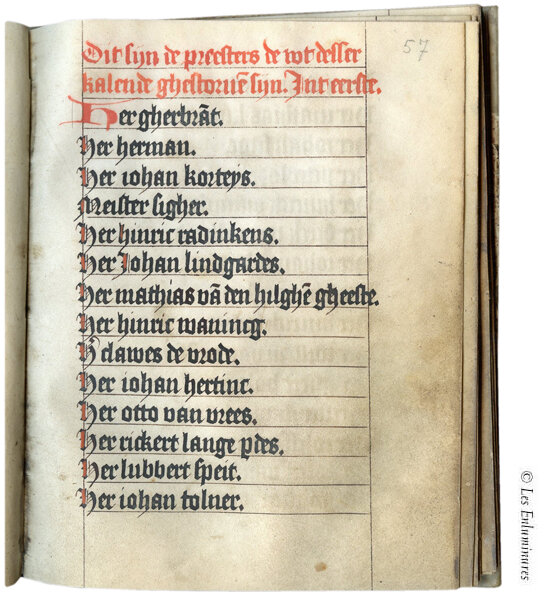 57
Dit sijn de preesters de wt desser
kalende ghestoruē sijn. Int eerste.
Her gherbrāt.
Her herman.
Her iohan korteys.
Meister sigher.
Her hinric radinkens.
Her Johan lindgardes.
Her mathias vā den hilghē gheeste.
Her hinric wauincg.
H clawes de vrode.
Her iohan hertinc.
Her otto van vrees.
Her rickert lange pdes.
Her lubbert speit.
Her iohan tolner.
© Les Enluminures